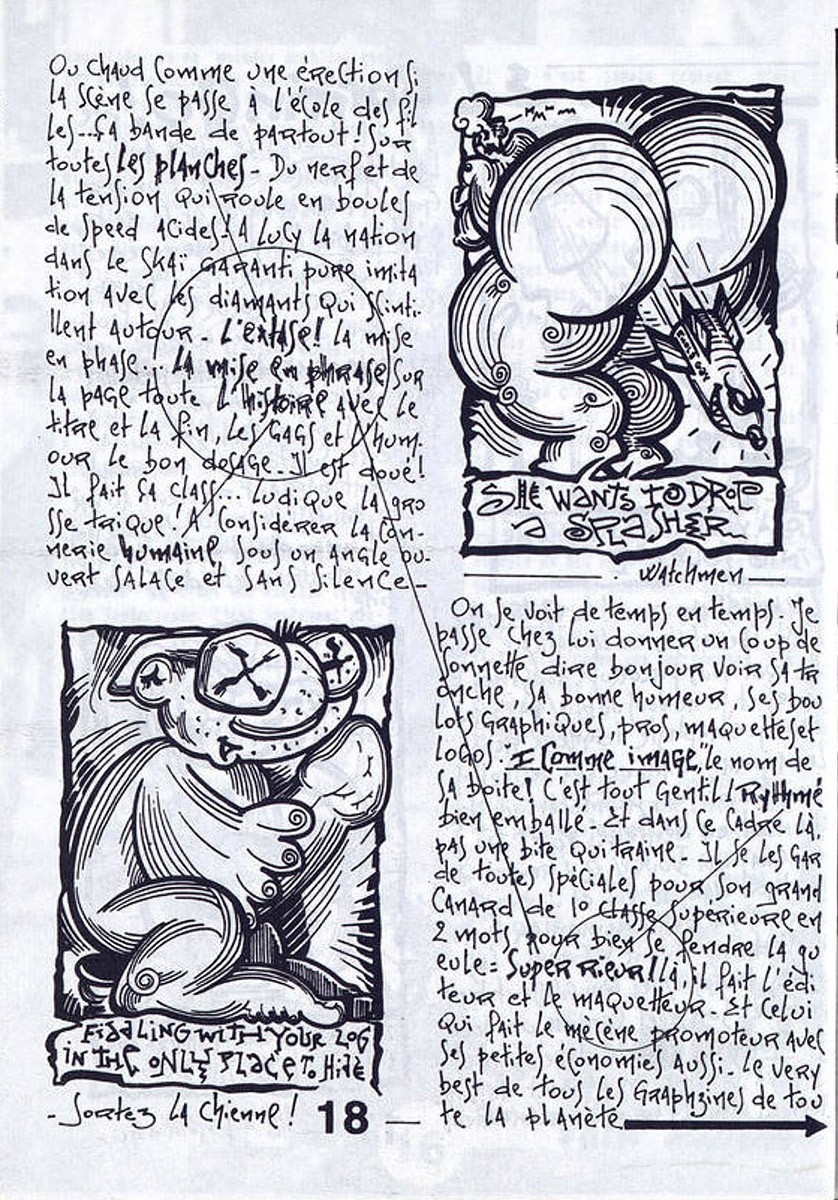 Ou chaud comme une érection si
la scène se passe à l'école des fil
les... ça bande de partout! Sur
toutes les planches - Du nerf et de
la tension qui roule en boules
de speed acides! A Lucy la nation
dans le skaï garanti pure imita
tion avec les diamants qui scinti-
llent autour - L'extase! la mise
en phase... la mise en phrase sur
la page toute l'histoire avec le
titre et la fin, les gags et l'hum-
our le bon dosage. Il est doué!
Il fait sa class... ludique la gro
sse trique! A considérer la con-
nerie humaine sous un angle ou-
vert salace et sans silence -
SHE WANTS TO DROP
a SPLASHER
watchmen
FIDDLING WITH YOUR LOG
IN THE ONLY PLACE TO HIDE
- Sortez la chienne!
18
On se voit de temps en temps. Je
passe chez lui donner un coup de
sonnette, dire bonjour voir sa tr
onche, sa bonne humeur, ses bou
lots graphiques, pros, maquettes et
logos. "I comme image," le nom de
sa boite! C'est tout gentil! Rythmé
bien emballé - Et dans ce cadre là,
pas une bite qui traine - Il se les gar
de toutes spéciales pour son grand
canard de 1° classe supérieure en
2 mots pour bien se fendre la gu
eule = Super Rieur! là, il fait l'édi-
teur et le maquetteur - Et celui
qui fait le mècène promoteur avec
ses petites économies aussi - le very
best de tous les graphzines de tou
te la planète